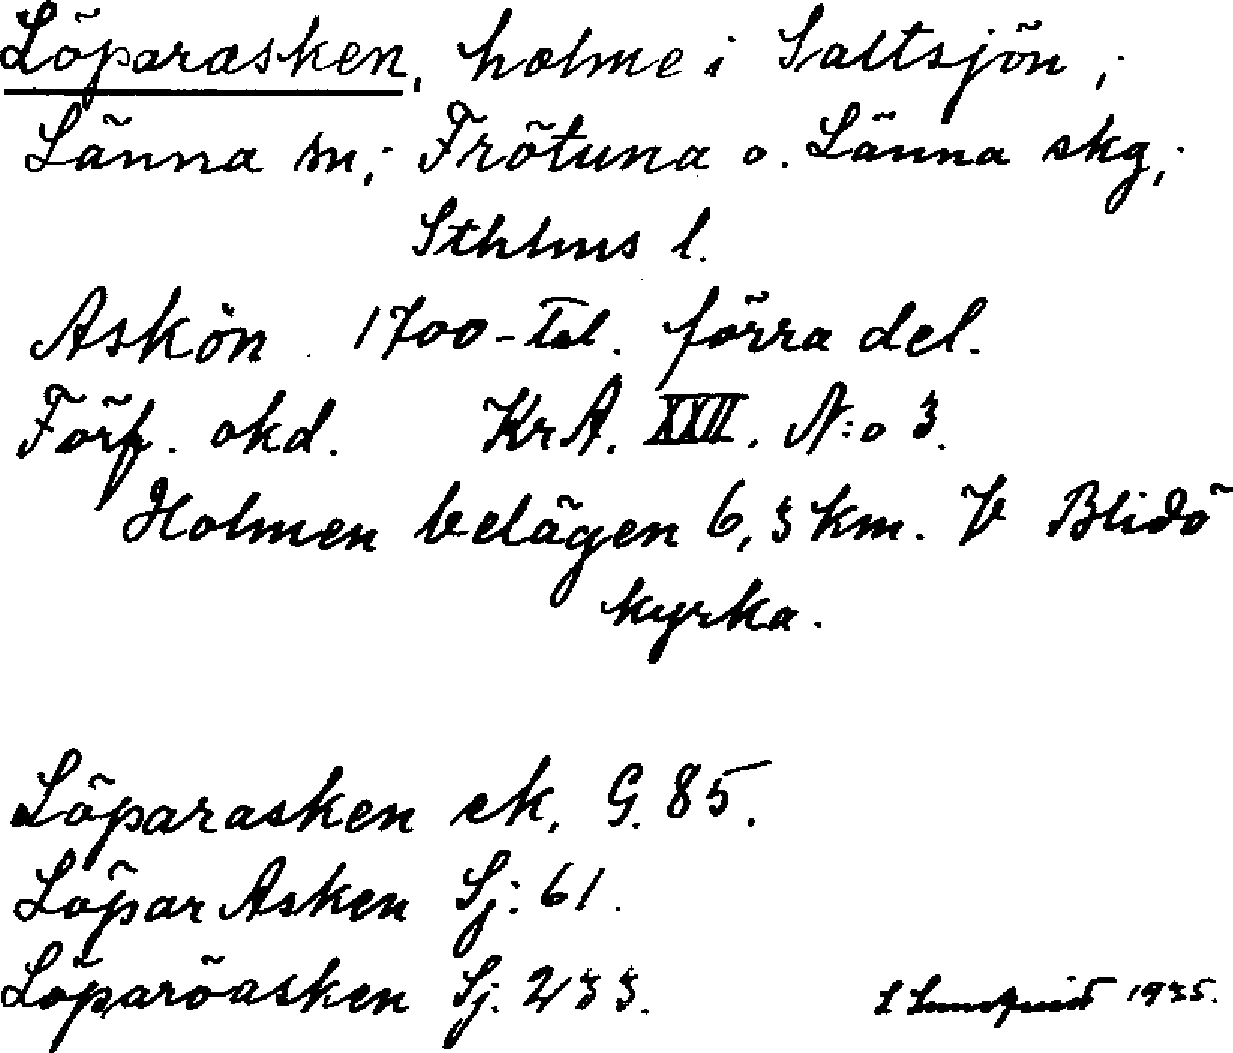 Löparasken, holme i Saltsjön,
Länna sn, Frötuna o. Länna skg,
Sthlms l.
Askön 1700-tal. förra del.
Förf. okd. KrA. XXII. N:o 3.
Holmen belägen 6,3 km. V Blidö
kyrka.
Löparasken ek. G. 85.
Löpar Asken Sj: 61.
Löparöasken Sj. 233.
L Lundquist 1935.